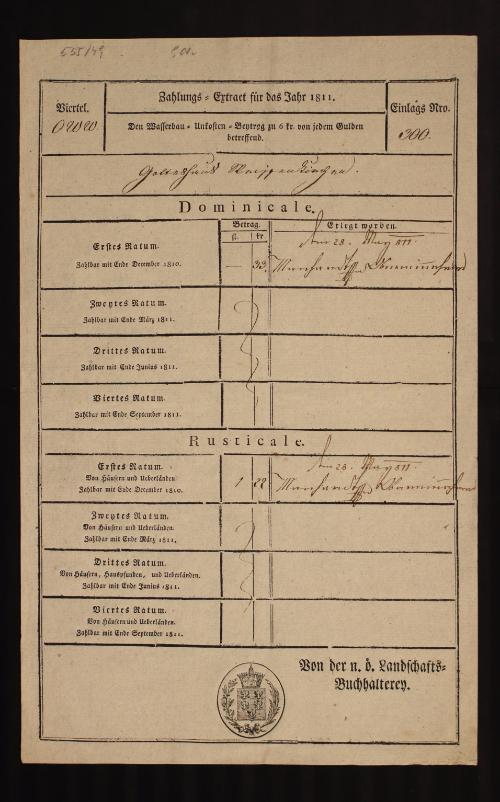 535/49
Viertel.
Zahlungs = Extract für das Jahr 1811.
Einlags Nro.
OWW
300.
Den Wasserbau = Unkosten = Beytrag zu 6 kr. von jedem Gulden
betreffend.
Gotteshaus
Dominicale.
Betrag.
Erlegt worden.
fl.
kr.
Erstes Ratum.
Zahlbar mit Ende December 1810.
— 33.
den 28. May 811.
Zweytes Ratum.
Zahlbar mit Ende März 1811.
Drittes Ratum.
Zahlbar mit Ende Junius 1811.
Viertes Ratum.
Zahlbar mit Ende September 1811.
Rusticale.
Erstes Ratum.
Von Häusern und Ueberländen
Zahlbar mit Ende December 1810.
1 22
den 28. May 811.
Zweytes Ratum.
Von Häusern und Ueberländen
Zahlbar mit Ende März 1811.
Drittes Ratum.
Von Häusern, Hauspfunden, und Ueberländen.
Zahlbar mit Ende Junius 1811.
Viertes Ratum.
Von Häusern und Ueberländen.
Zahlbar mit Ende September 1811.
Von der n. ö. Landschafts=
Buchhalterey.